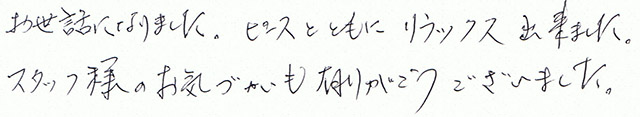 お世話になりました。ピースとともにリラックス出来ました。
スタッフ様のお気づかいも有りがとうございました。